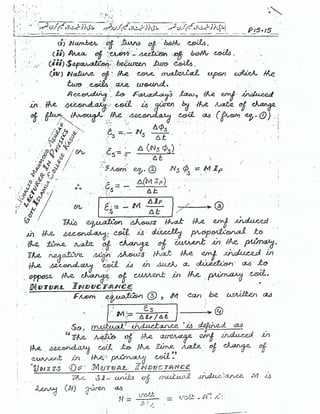 P15-15
(i) Number of turns of both coils.
(ii) Area of cross-section of both coils.
(iii) Separation between two coils.
(iv) Nature of the core material upon which the
two coils are wound.
According to Faraday's law, the emf induced
in the secondary coil is given by the rate of change
of flux through the secondary coil as (from eq. ①)
Ɛs = - Ns ΔΦs / Δt
or Ɛs = - Δ(Ns Φs) / Δt
From eq. ② Ns Φs = M Ip
∴ Ɛs = - Δ(M Ip) / Δt
or Ɛs = - M ΔIp / Δt → ③
This equation shows that the emf induced
in the secondary coil is directly proportional to
the time rate of change of current in the primary.
The negative sign shows that the emf induced in
the secondary coil is in such a direction as to
oppose the change of current in the primary coil.
MUTUAL INDUCTANCE
From equation ③, M can be written as
M = Ɛs / ΔIp/Δt → ④
So, mutual inductance is defined as
"The ratio of the average emf induced in
the secondary coil to the time rate of change of
current in the primary coil".
UNITS OF MUTUAL INDUCTANCE
The SI-units of mutual inductance M is
henry (H) given as
KHALID MAHMOOD
LECTURER IN PHYSICS
GOVT. ISLAMIA COLLEGE